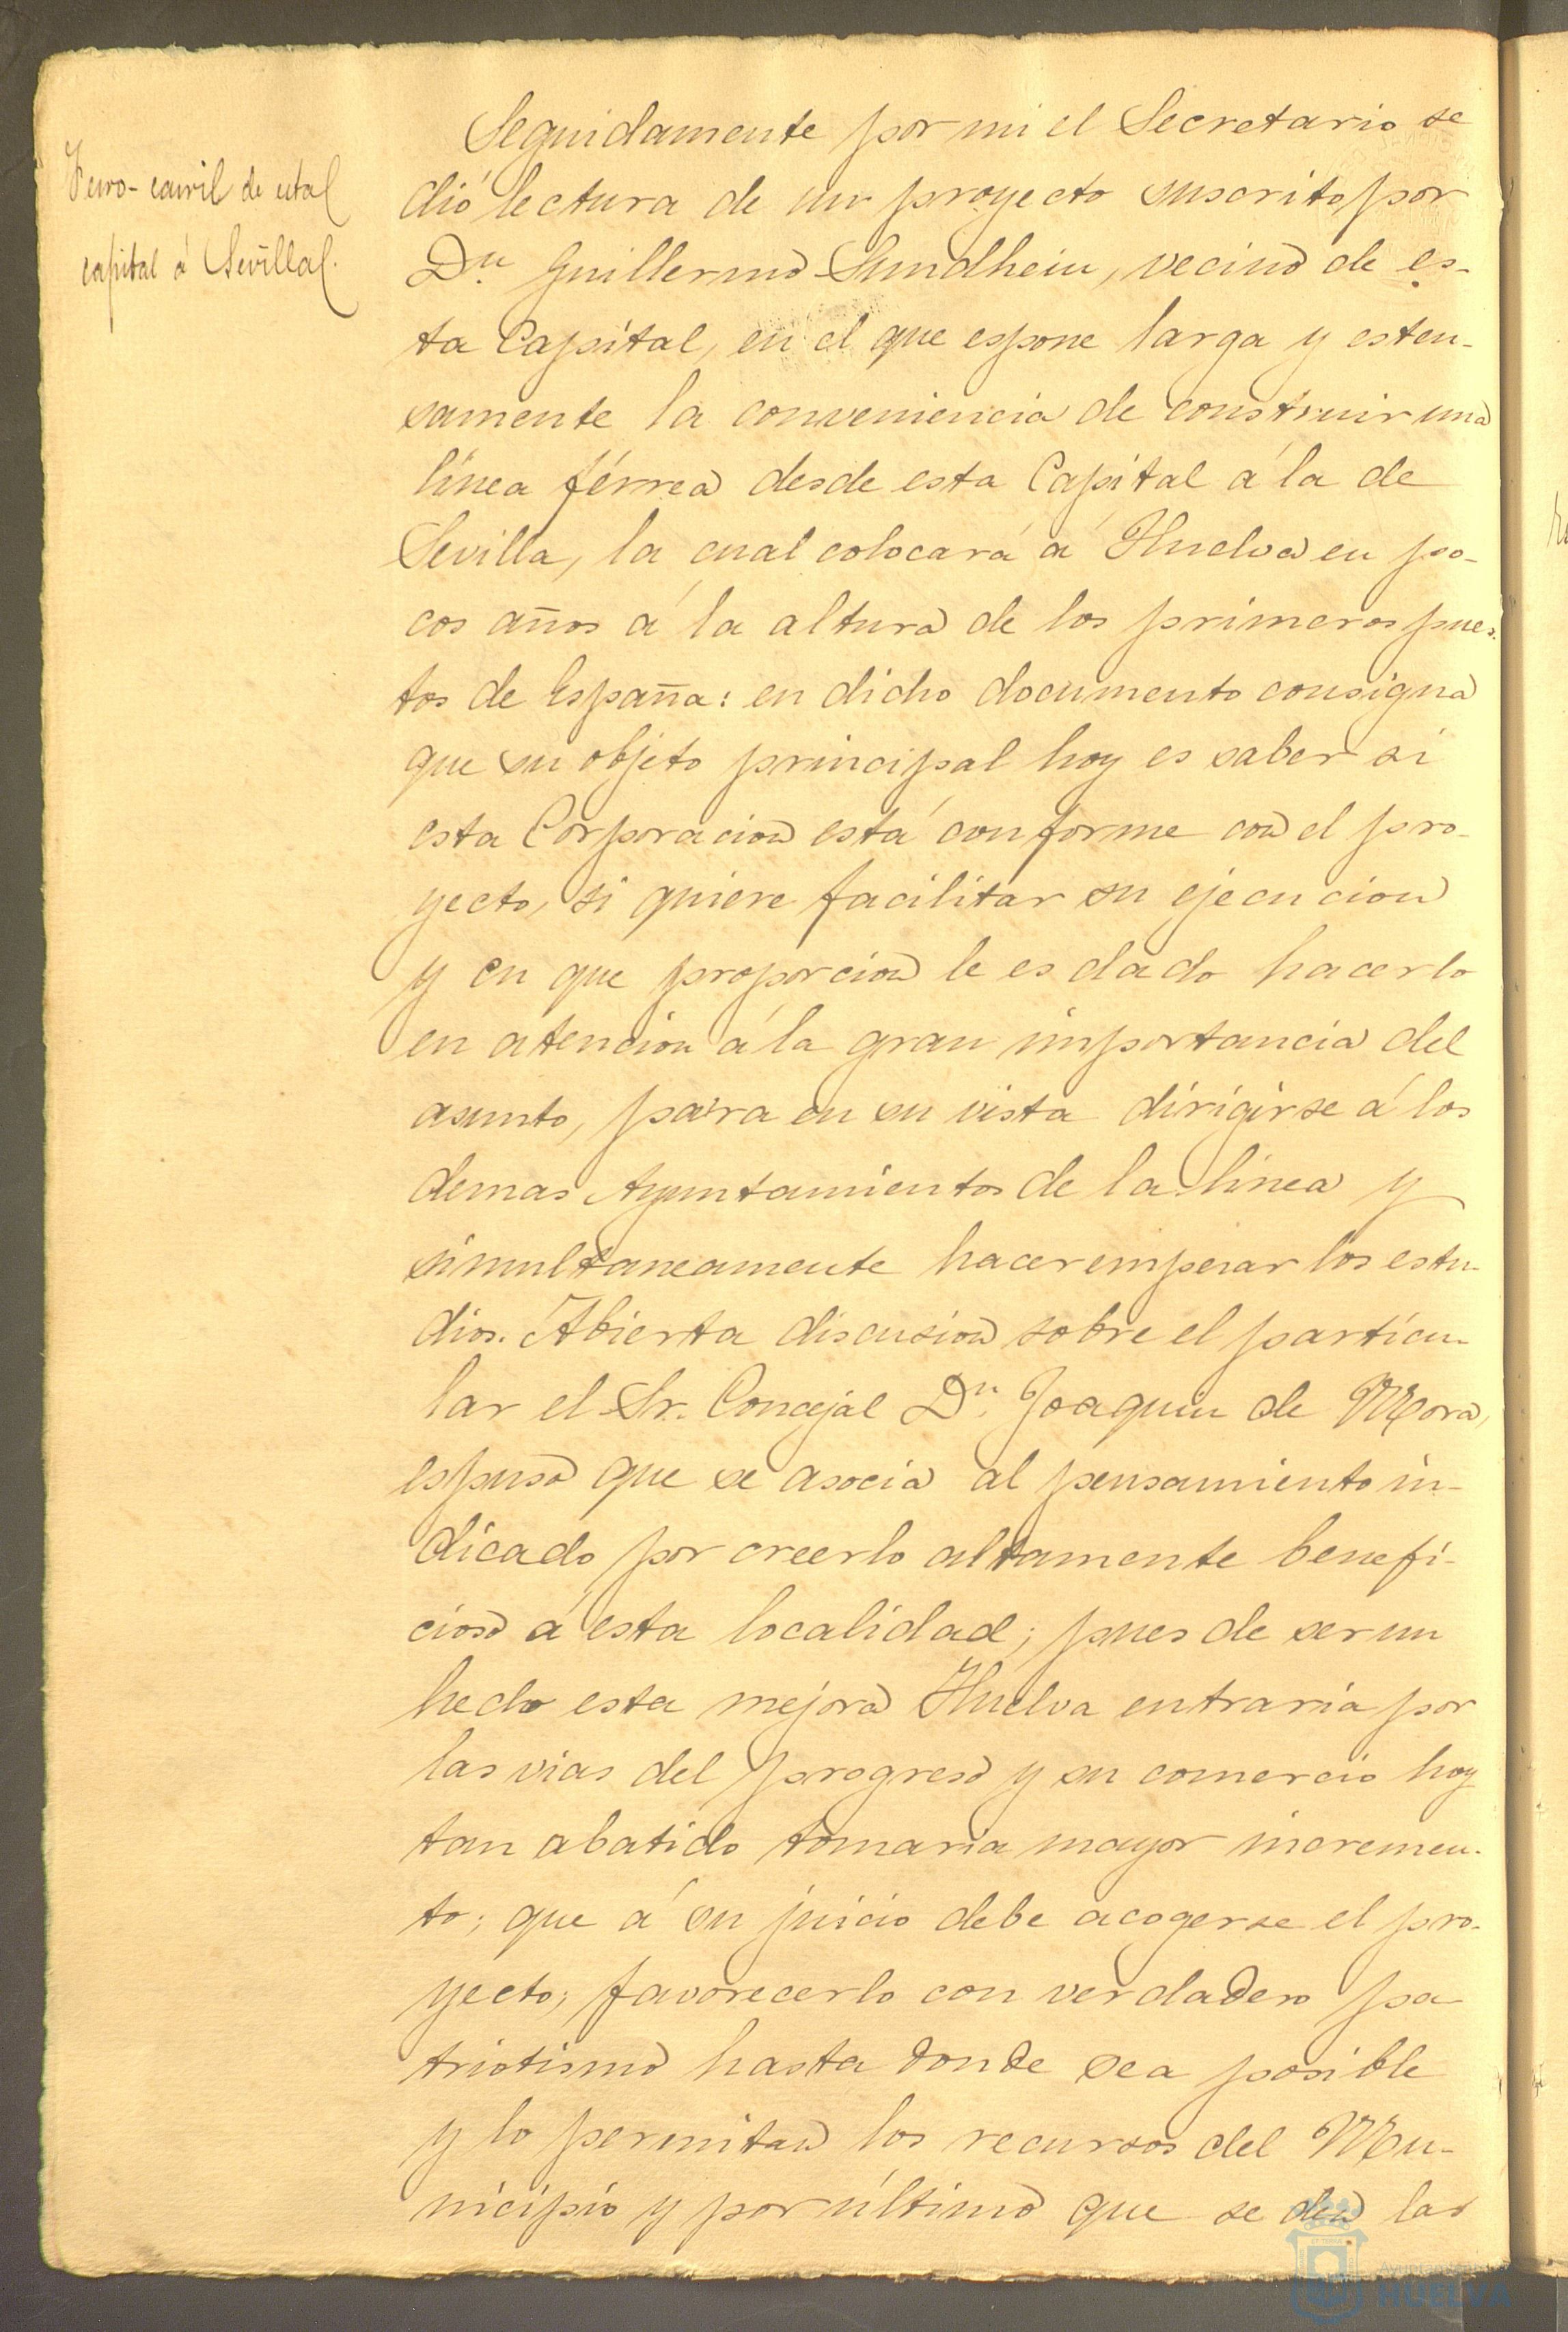 Ferro-carril de esta
capital á Sevilla.
Seguidamente por mi el Secretario se
dió lectura de un proyecto suscrito por
Dn. Guillermo Sundhein, vecino de es-
ta Capital, en el que espone larga y esten-
samente la conveniencia de construir una
línea férrea desde esta Capital á la de
Sevilla, la cual colocará á Huelva en po-
cos años á la altura de los primeros pues-
tos de España: en dicho documento consigna
que su objeto principal hoy es saber si
esta Corporacion está conforme con el pro-
yecto, si quiere facilitar su ejecucion
y en que proporcion le es dado hacerlo
en atencion á la gran importancia del
asunto, para en su vista dirigirse á los
demas Ayuntamientos de la linea y
simultaneamente hacer empezar los estu-
dios. Abierta discusion sobre el particu-
lar el Sr. Concejal Dn. Joaquin de Mora,
espuso que se asocia al pensamiento in-
dicado por creerlo altamente benefi-
cioso á esta localidad; pues de ser un
hecho esta mejora Huelva entraria por
las vias del progreso y su comercio hoy
tan abatido tomaria mayor incremen-
to; que á su juicio debe acogerse el pro-
yecto; favorecerlo con verdadero pa
triotismo hasta donde sea posible
y lo permitan los recursos del Mu-
nicipio y por último que se den las
HUELVA